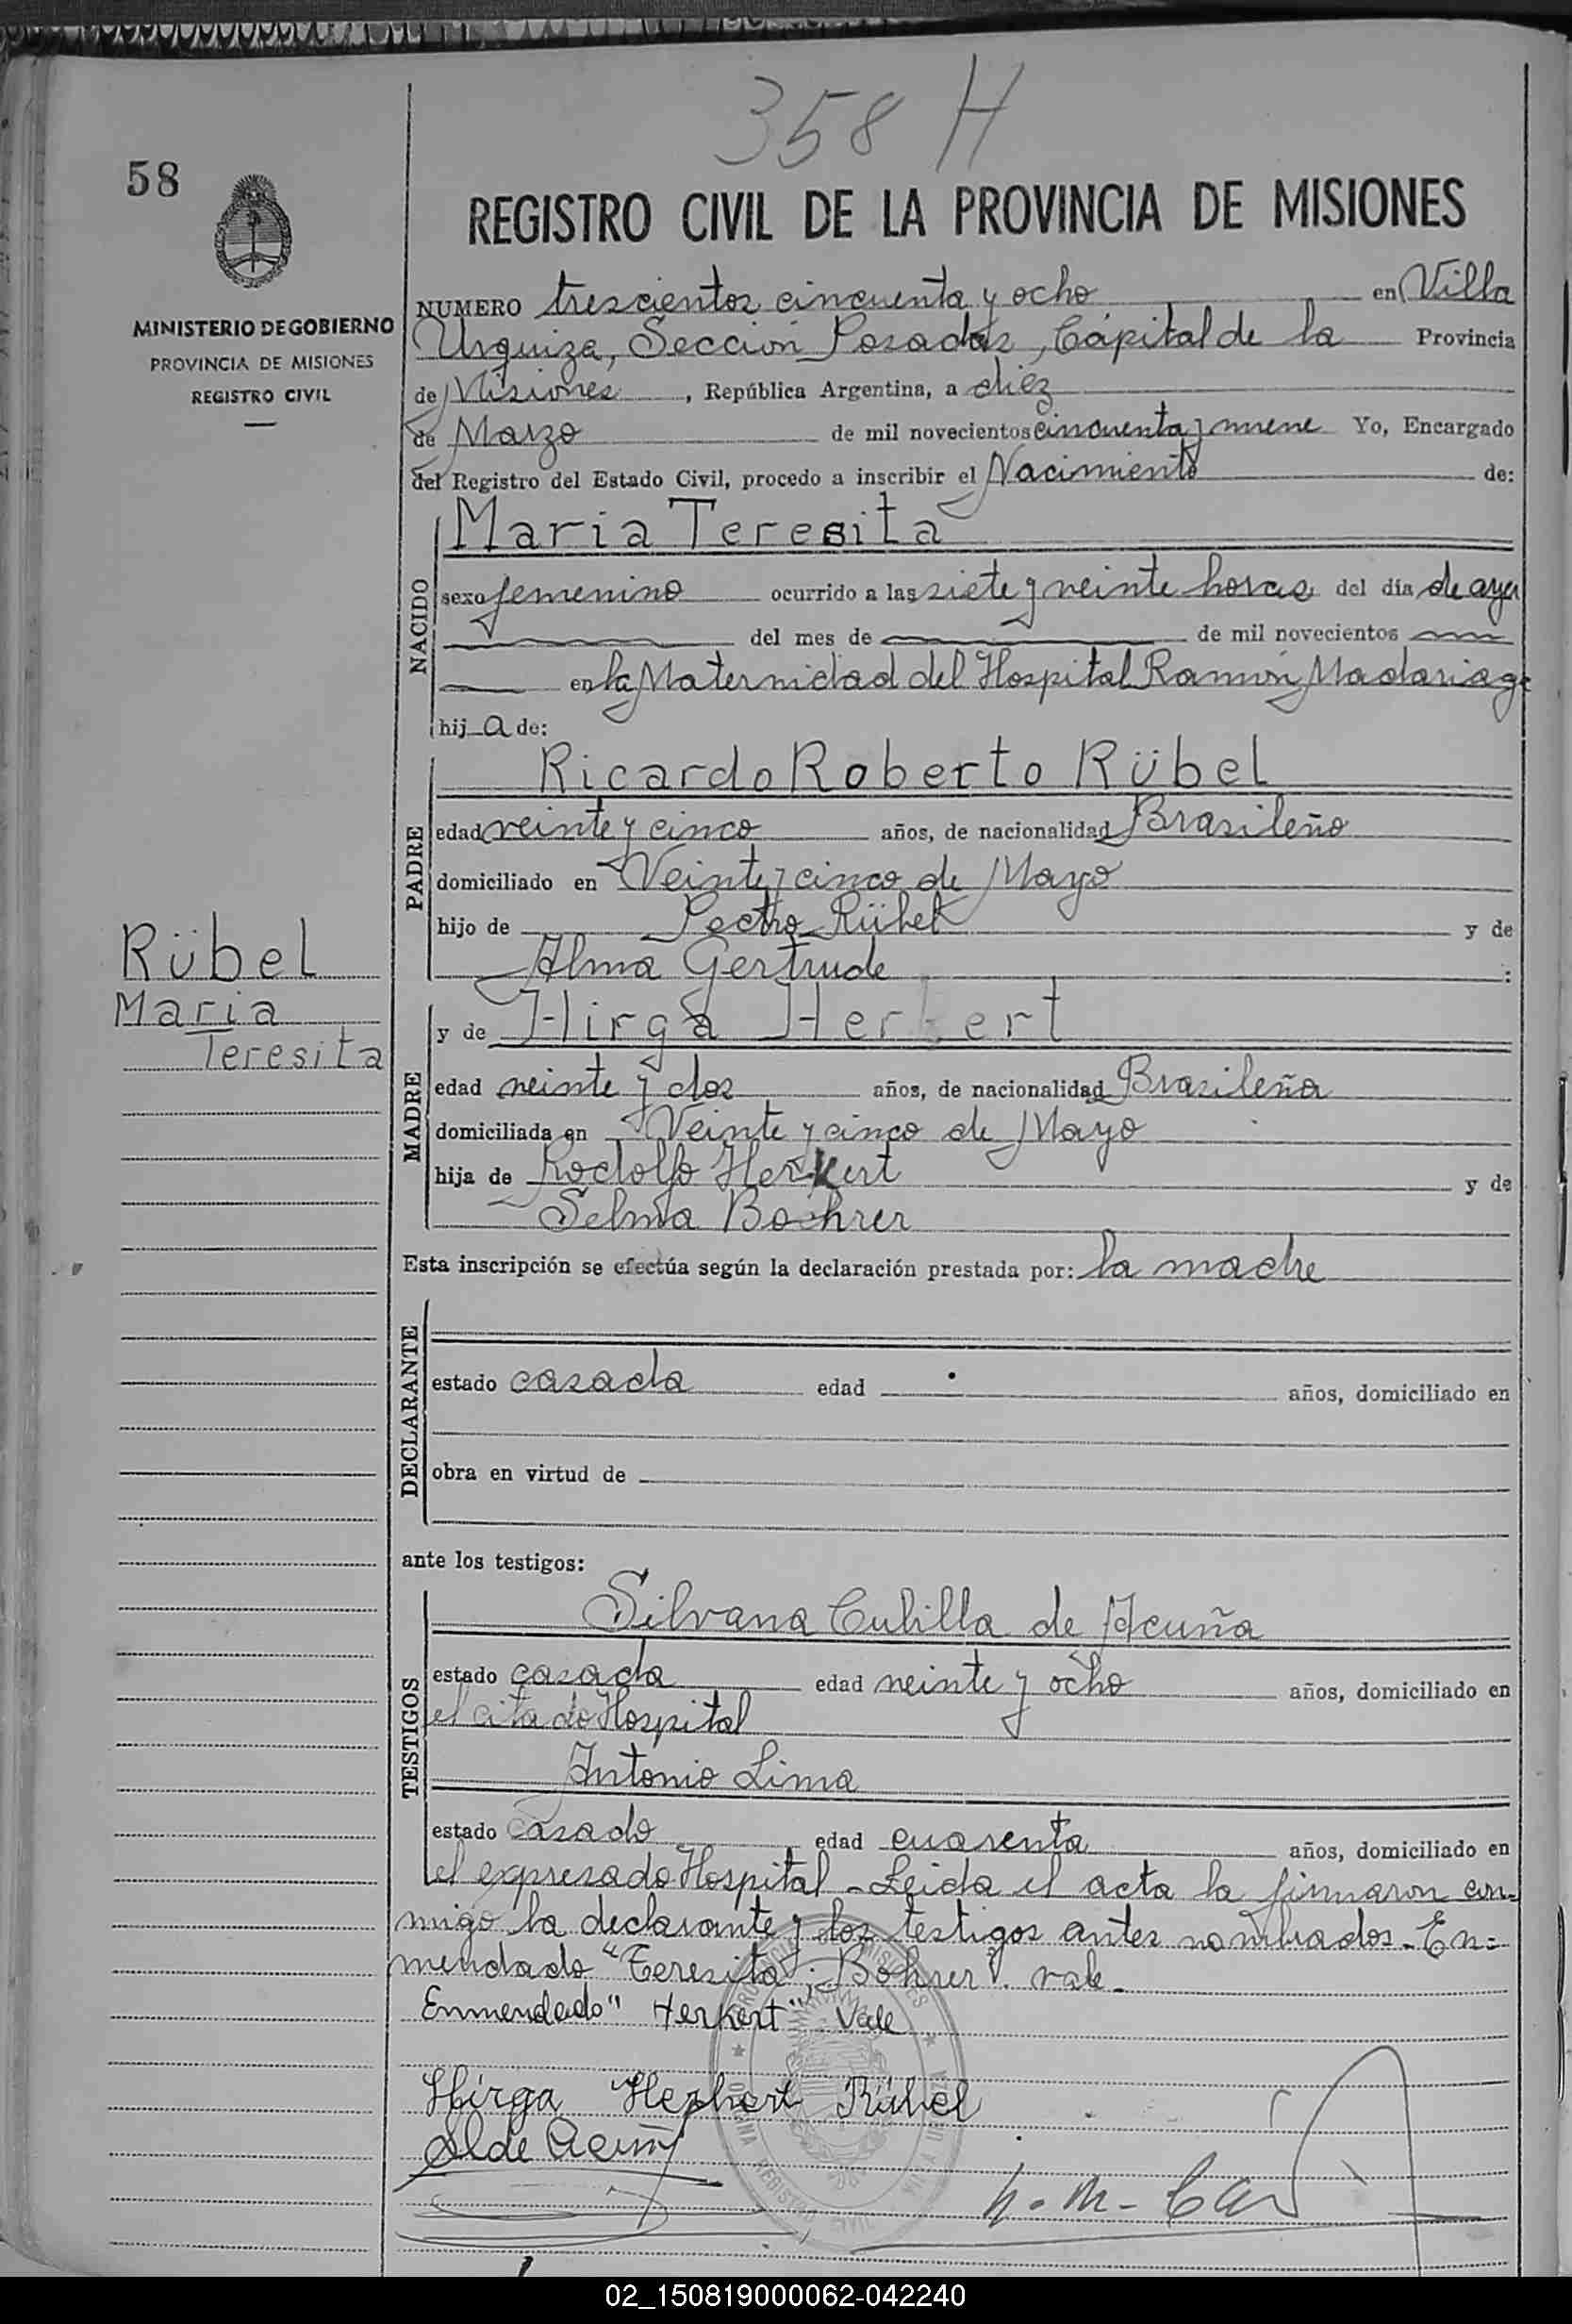 358 H
58
REGISTRO CIVIL DE LA PROVINCIA DE MISIONES
MINISTERIO DE GOBIERNO
PROVINCIA DE MISIONES
REGISTRO CIVIL
NUMERO trescientos cincuenta y ocho en Villa
Urquiza, Sección Posadas, Cápital de la Provincia
de Misiones, República Argentina, a diez
de Marzo de mil novecientos cincuenta y nueve Yo, Encargado
del Registro del Estado Civil, procedo a inscribir el Nacimiento de:
NACIDO
Maria Teresita
sexo femenino ocurrido a las siete y veinte horas del día de ayer
del mes de de mil novecientos
en la Maternidad del Hospital Ramón Madariaga
hija de:
PADRE
Ricardo Roberto Rübel
edad veinte y cinco años, de nacionalidad Brasileño
domiciliado en Veinte y cinco de Mayo
hijo de Pedro Rübel y de
Alma Gertrude :
Rübel
Maria
Teresita
MADRE
y de Hirga Herkert
edad veinte y dos años, de nacionalidad Brasileña
domiciliada en Veinte y cinco de Mayo
hija de Rodolfo Herkert y de
Selma Boehrer
Esta inscripción se efectúa según la declaración prestada por: la madre
DECLARANTE
estado casada edad años, domiciliado en
obra en virtud de
ante los testigos:
TESTIGOS
Silvana Cubilla de Acuña
estado casada edad veinte y ocho años, domiciliado en
el citado Hospital
Antonio Lima
estado casado edad cuarenta años, domiciliado en
el expresado Hospital - Leida el acta la firmaron con-
migo la declarante y los testigos antes nombrados. En=
mendado "Teresita"; Bohrer". vale.
Enmendado "Herkert" Vale
Hirga Herkert Rübel
S. de Acuña
02_150819000062-042240